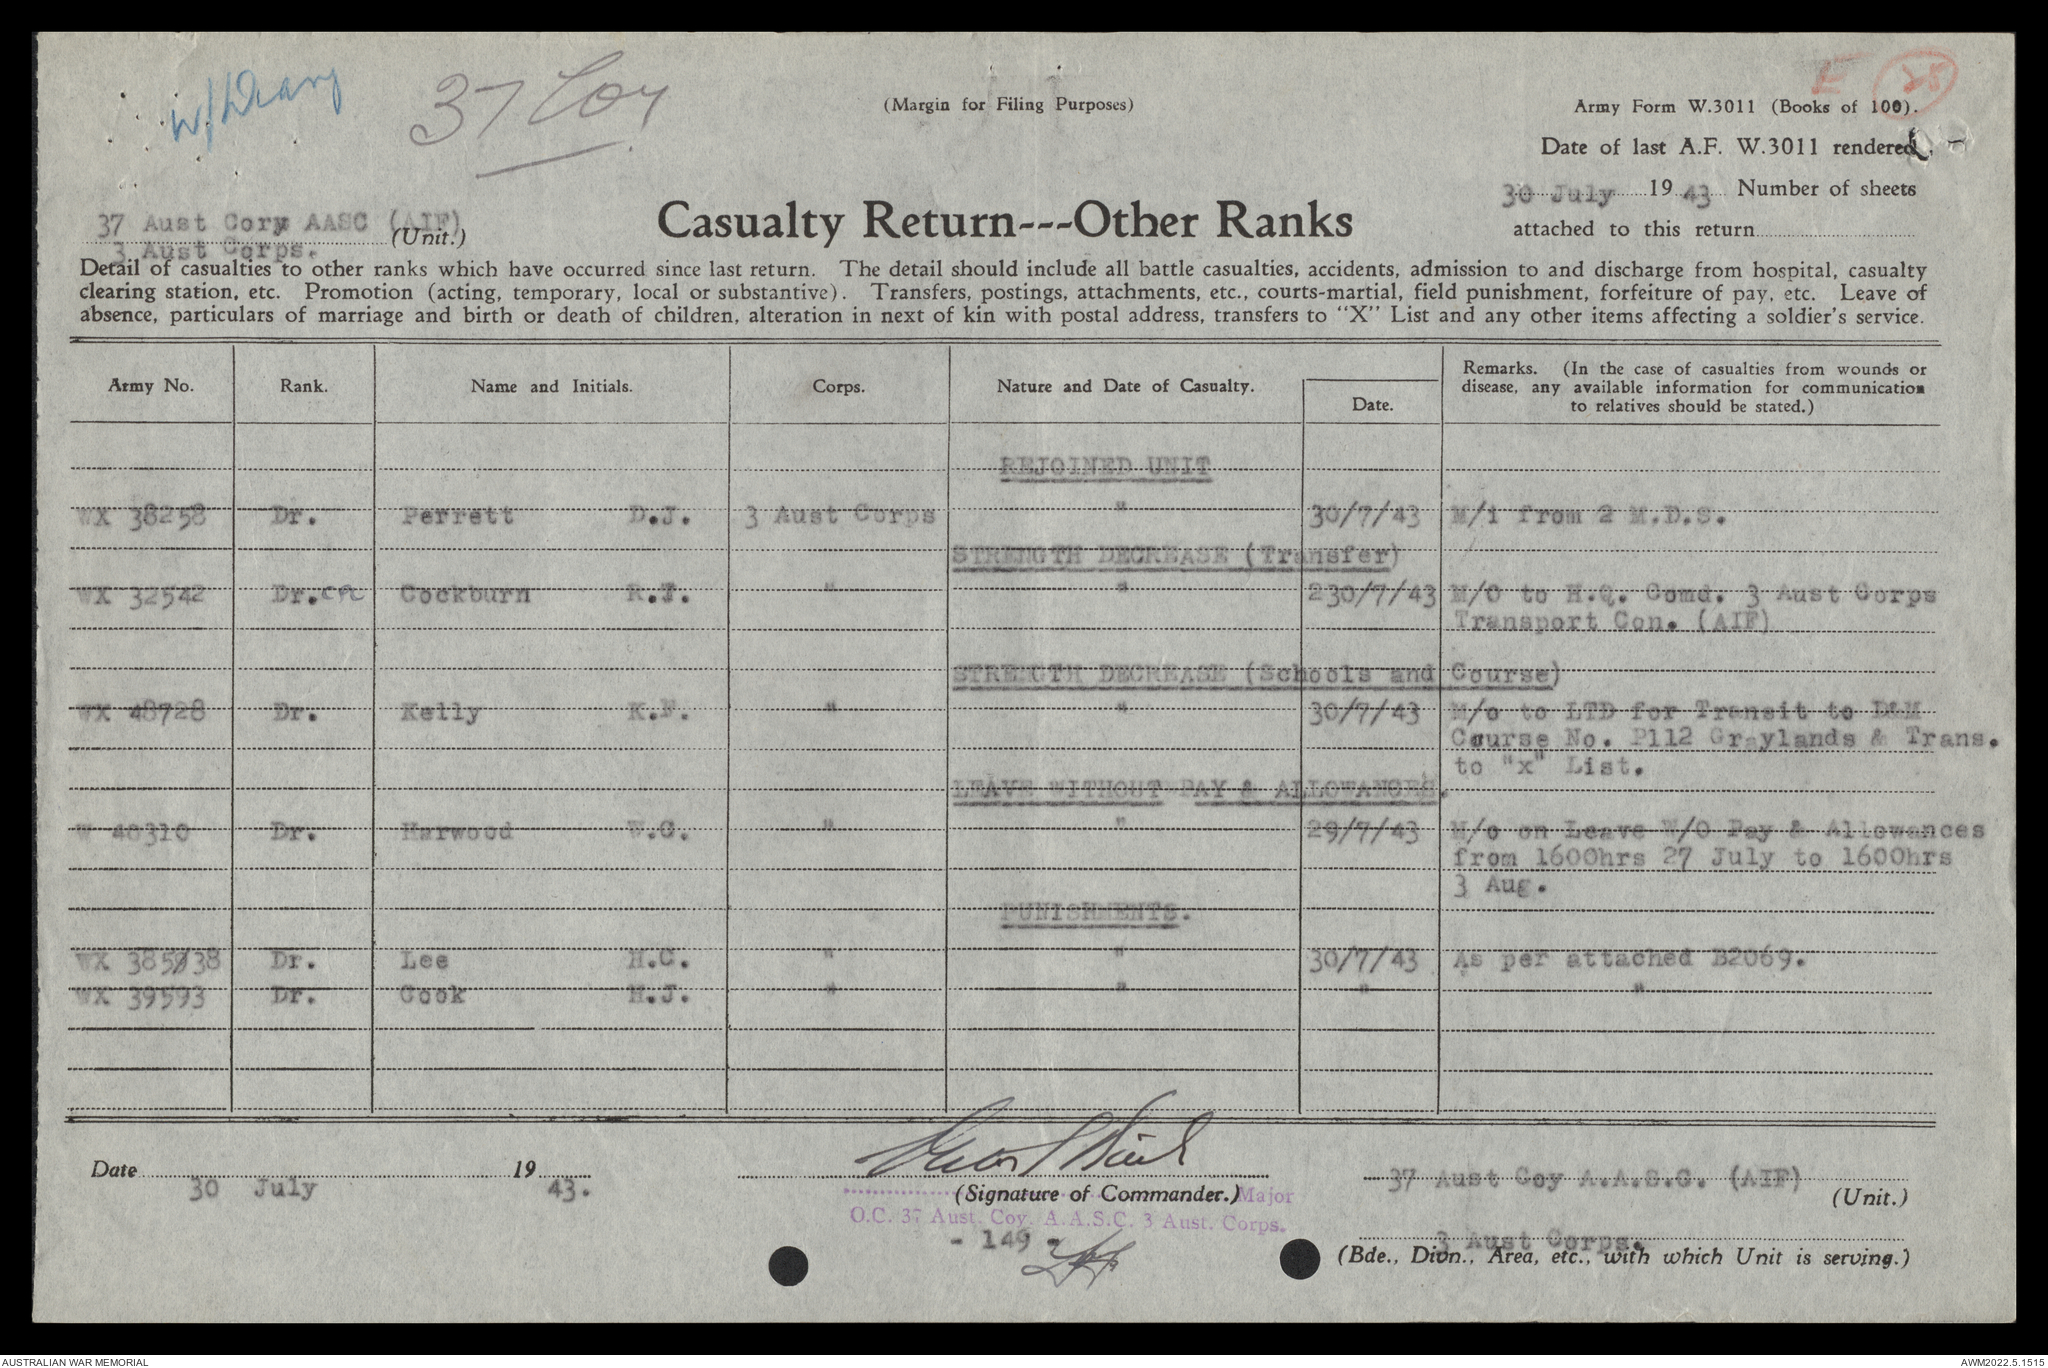 w/Diary
37 Coy
(Margin for Filing Purposes)
E 25
Army Form W.3011 (Books of 100).
Date of last A.F. W.3011 rendered
30 July 1943 Number of sheets
attached to this return
37 Aust Cory AASC (AIF)
(Unit.)
3 Aust Corps.
Casualty Return---Other Ranks
Detail of casualties to other ranks which have occurred since last return. The detail should include all battle casualties, accidents, admission to and discharge from hospital, casualty
clearing station, etc. Promotion (acting, temporary, local or substantive). Transfers, postings, attachments, etc., courts-martial, field punishment, forfeiture of pay, etc. Leave of
absence, particulars of marriage and birth or death of children, alteration in next of kin with postal address, transfers to "X" List and any other items affecting a soldier's service.
Army No. Rank. Name and Initials. Corps. Nature and Date of Casualty. Date. Remarks. (In the case of casualties from wounds or
disease, any available information for communication
to relatives should be stated.)
REJOINED UNIT
WX 38258 Dr. Perrett D.J. 3 Aust Corps " 30/7/43 M/i from 2 M.D.S.
STRENGTH DECREASE (Transfer)
WX 32542 Dr. Cockburn R.T. " " 230/7/43 M/O to H.Q. Comd. 3 Aust Corps
Transport Con. (AIF)
STRENGTH DECREASE (Schools and Course)
WX 48728 Dr. Kelly K.F. " " 30/7/43 M/o to LTD for Transit to D&M
Course No. P112 Graylands & Trans.
to "x" List.
LEAVE WITHOUT PAY & ALLOWANCES.
W 40310 Dr. Harwood W.G. " " 29/7/43 M/o on Leave W/O Pay & Allowances
from 1600hrs 27 July to 1600hrs
3 Aug.
PUNISHMENTS.
WX 385938 Dr. Lee H.C. " " 30/7/43 As per attached B2069.
WX 39593 Dr. Cook H.J. " " " "
Date 30 July 1943.
(Signature of Commander.) Major
O.C. 37 Aust. Coy. A.A.S.C. 3 Aust. Corps.
- 149 -
37 Aust Coy A.A.S.C. (AIF)
(Unit.)
3 Aust Corps.
(Bde., Divn., Area, etc., with which Unit is serving.)
AUSTRALIAN WAR MEMORIAL
AWM2022.5.1515